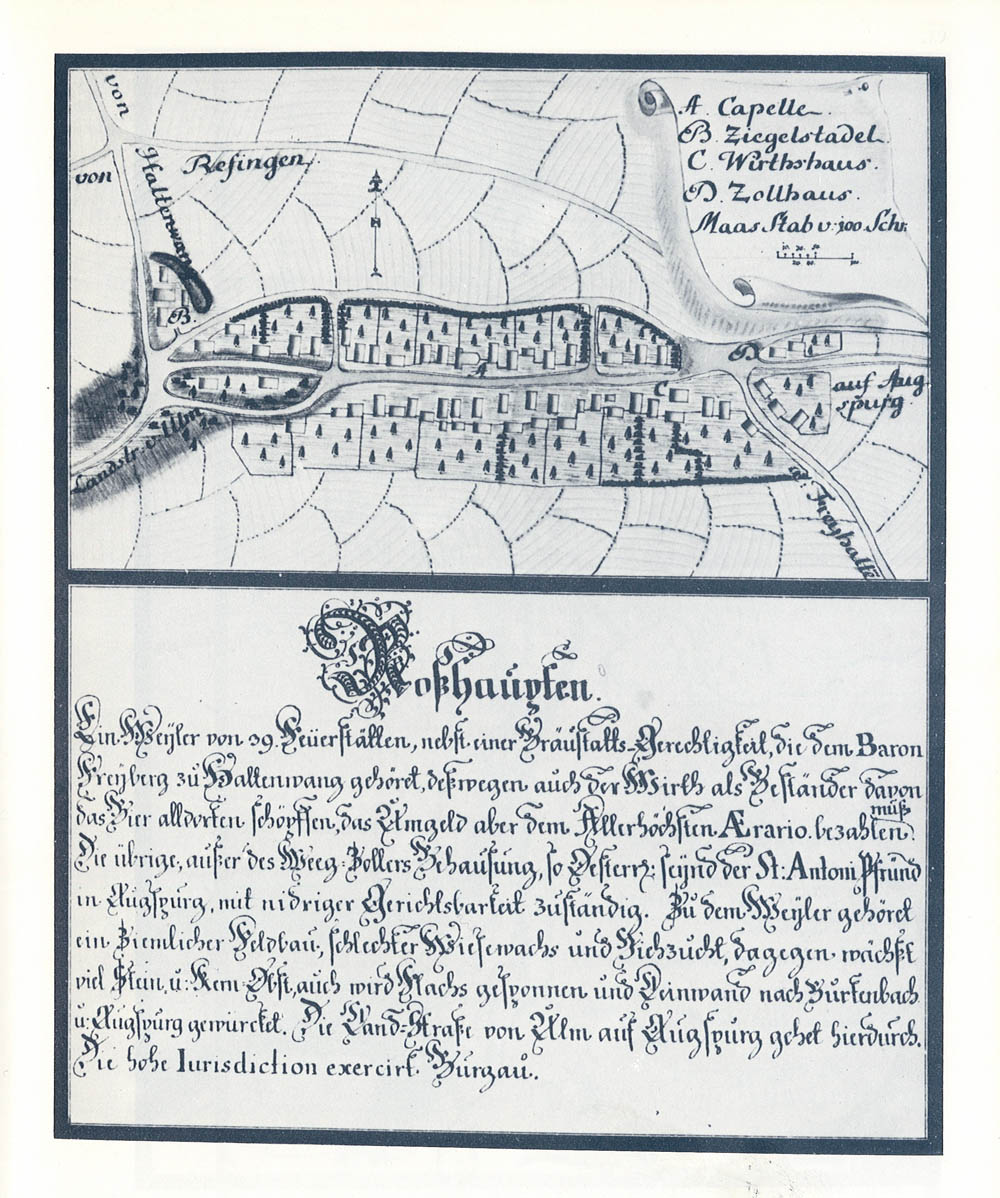 von
von
Haltenwang
Refingen
A Capelle.
B. Ziegelstadel.
C. Wirthshaus.
D. Zollhaus.
Maas Stab v: 100 Schr:
B.
A
C
D
auf Aug
spurg.
Landstr: v. Ulm
a: Freyhalte
Roßhaupten.
Ein Weyler von 39. Feüerställen, nebst einer Bräustatts-Gerechtigkeit, die dem Baron
Freyberg zu Haltenwang gehöret, deßwegen auch der Wirth als Beständer davon
das Bier alldorten schöpffen, das Umgeld aber dem Allerhöchsten Ærario. bezahlen muß.
Die übrige, außer des Weeg-Zollers Behausung, so Oesterr: seÿnd der St: Antoni Pfründ
in Augspurg, mit nidriger Gerichtsbarkeit zuständig. Zu dem Weyler gehöret
ein Ziemlicher Feldbau, schlechter Wiesewachs und Viehzucht, dagegen wächst
viel Stein. u: Kern-Obst, auch wird Flachs gesponnen und Leinwand nach Burtenbach
u: Augspurg gewürcket. Die Land-Straße von Ulm auf Augspurg gehet hierdurch.
Die hohe Iurisdiction exercirt Burgau.